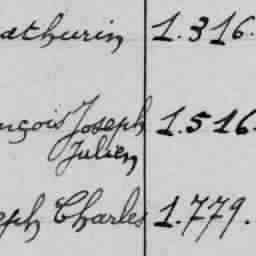 athurin 1.316.
nçois Joseph 1.516.
Julien
eph Charles 1.779.